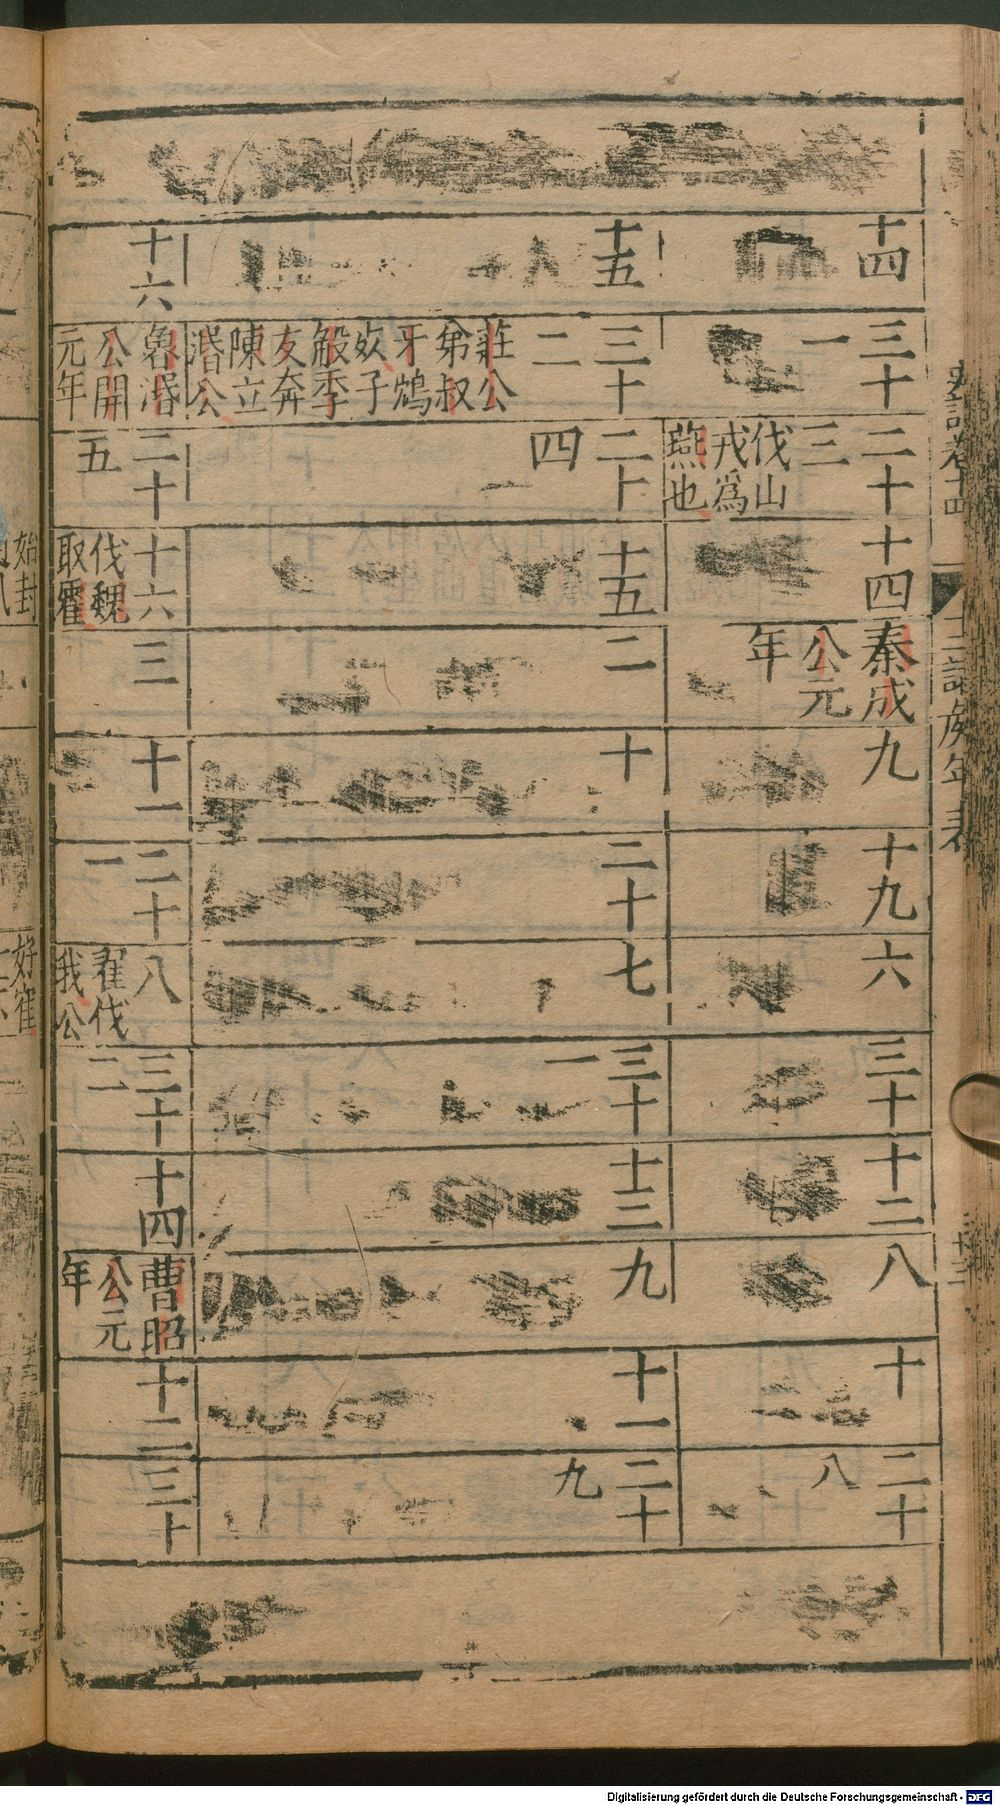 十四
三十
一
二十
三
伐山
戎爲
燕也
十四
秦成
公元
年
九
十九
六
三十
十二
八
十
二十
八
十五
三十
二
莊公
弟叔
牙鴆
子
般季
友奔
陳立
湣公
二十
四
十五
二
十
二十
七
三十
一
十三
九
十一
二十
九
十六
魯湣
公開
元年
二十
五
十六
伐魏
取霍
三
十一
二十
一
八
翟伐
我公
三十
二
十四
曹昭
公元
年
十二
三十
始封
好崔
Digitalisierung gefördert durch die Deutsche Forschungsgemeinschaft - DFG